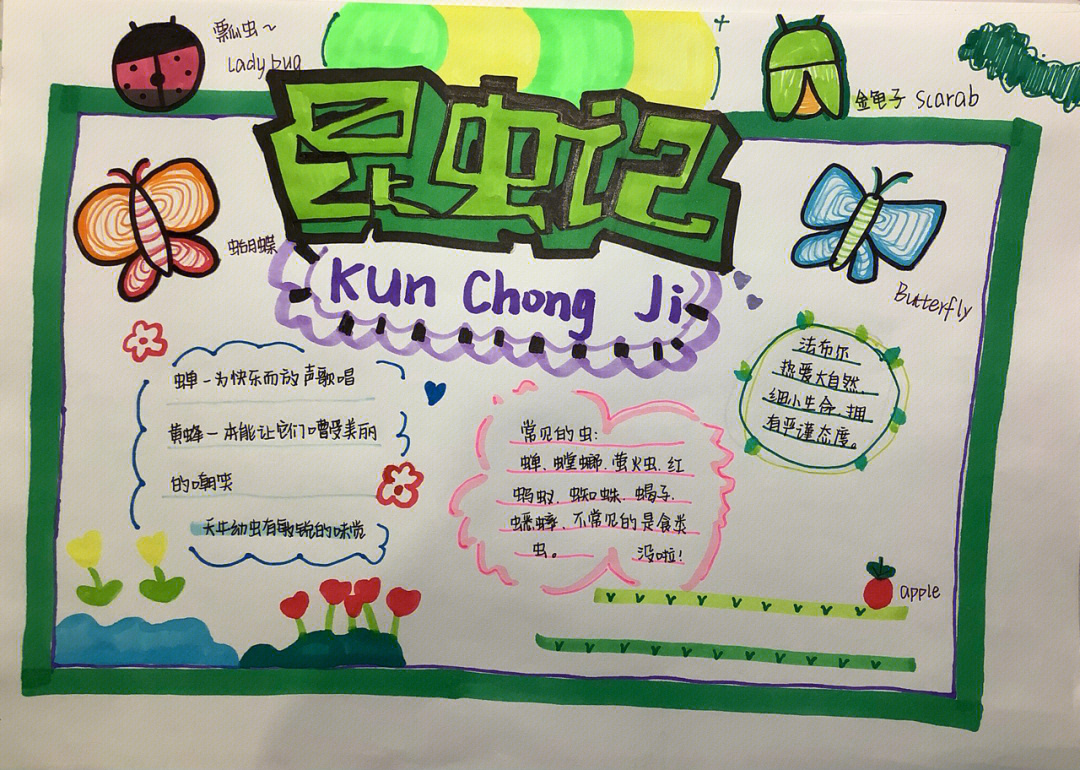 瓢虫~
Ladybug
昆虫记
金龟子 scarab
Kun Chong Ji
蝴蝶
Butterfly
法布尔
热爱大自然、
细小生命、拥
有严谨态度。
蝉—为快乐而放声歌唱
黄蜂—本能让它们嘈受美丽
的嘲笑
天牛幼虫有敏锐的味觉
常见的虫:
蝉、螳螂、萤火虫、红
蚂蚁、蜘蛛、蝎子、
蟋蟀、不常见的是食粪
虫。 没啦!
apple